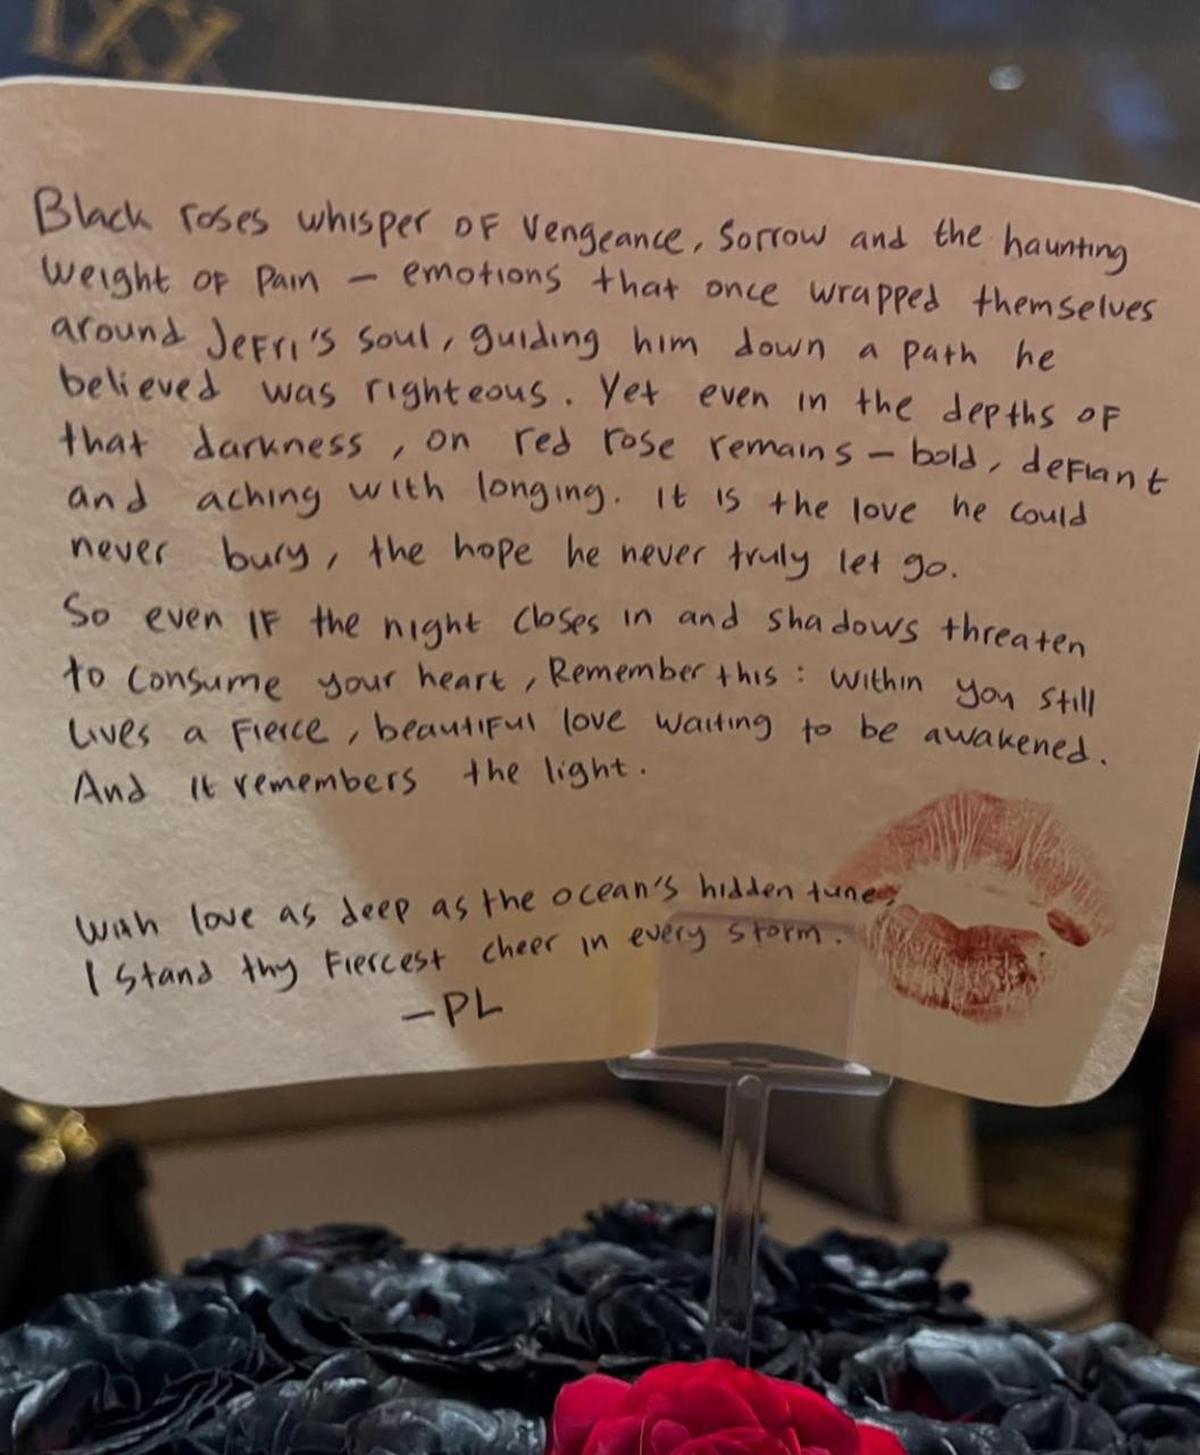 Black roses whisper of vengeance, sorrow and the haunting
weight of pain — emotions that once wrapped themselves
around Jefri's soul, guiding him down a path he
believed was righteous. Yet even in the depths of
that darkness, on red rose remains — bold, defiant
and aching with longing. It is the love he could
never bury, the hope he never truly let go.
So even if the night closes in and shadows threaten
to consume your heart, Remember this: within you still
lives a fierce, beautiful love waiting to be awakened.
And it remembers the light.
With love as deep as the ocean's hidden tune,
I stand thy fiercest cheer in every storm.
—PL